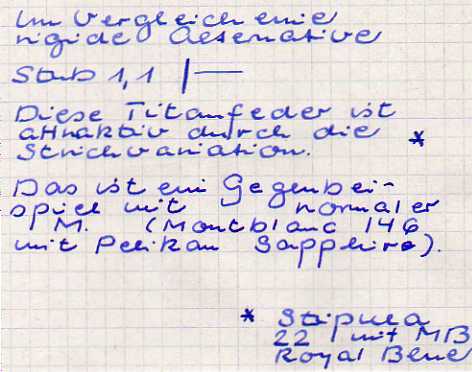 Im Vergleich eine
rigide Alternative
Stub 1,1
Diese Titanfeder ist
attraktiv durch die *
Strichvariation.
Das ist ein Gegenbei-
spiel mit normaler
M. (Montblanc 146
mit Pelikan Sapphire).
* Stipula
22 mit MB
Royal Blue